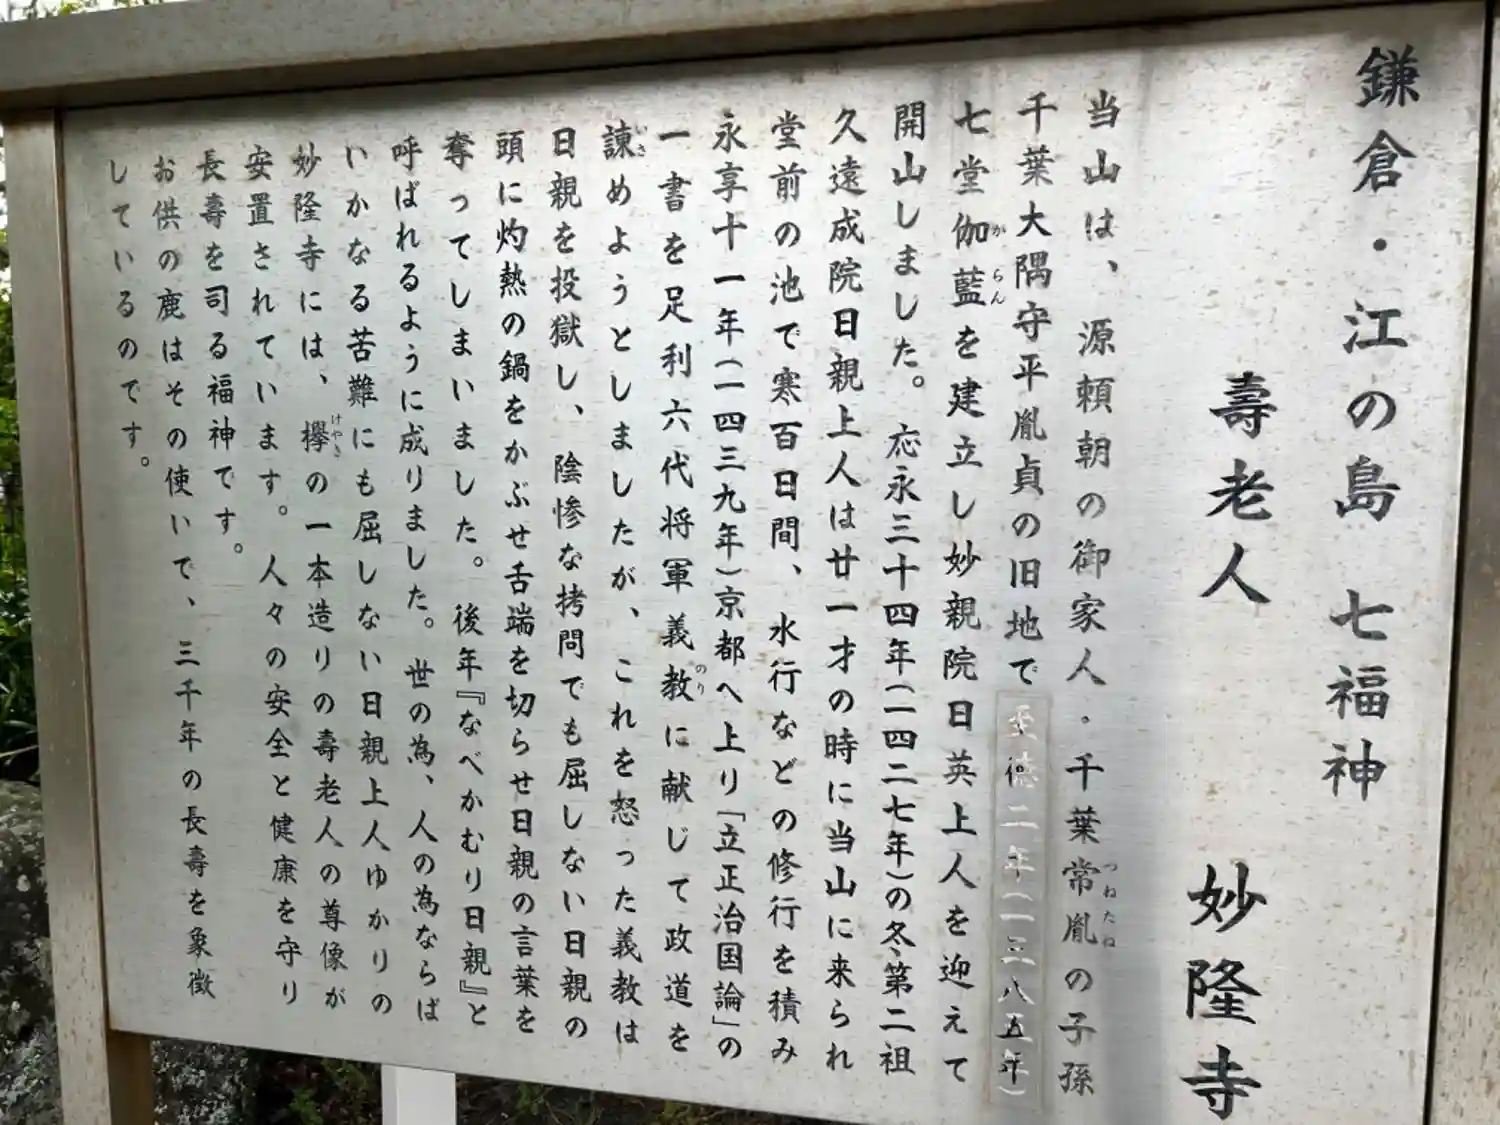 鎌倉・江の島 七福神
壽老人 妙隆寺
当山は、源頼朝の御家人・千葉常胤の子孫
つねたね
千葉大隅守平胤貞の旧地で至徳二年(一三八五年)
七堂伽藍を建立し妙親院日英上人を迎えて
がらん
開山しました。応永三十四年(一四二七年)の冬、第二祖
久遠成院日親上人は廿一才の時に当山に来られ
堂前の池で寒百日間、水行などの修行を積み
永享十一年(一四三九年)京都へ上り「立正治国論」の
一書を足利六代将軍義教に献じて政道を
のり
諌めようとしましたが、これを怒った義教は
いさ
日親を投獄し、陰惨な拷問でも屈しない日親の
頭に灼熱の鍋をかぶせ舌端を切らせ日親の言葉を
奪ってしまいました。後年『なべかむり日親』と
呼ばれるように成りました。世の為、人の為ならば
いかなる苦難にも屈しない日親上人ゆかりの
妙隆寺には、欅の一本造りの壽老人の尊像が
けやき
安置されています。人々の安全と健康を守り
長壽を司る福神です。
お供の鹿はその使いで、三千年の長壽を象徴
しているのです。